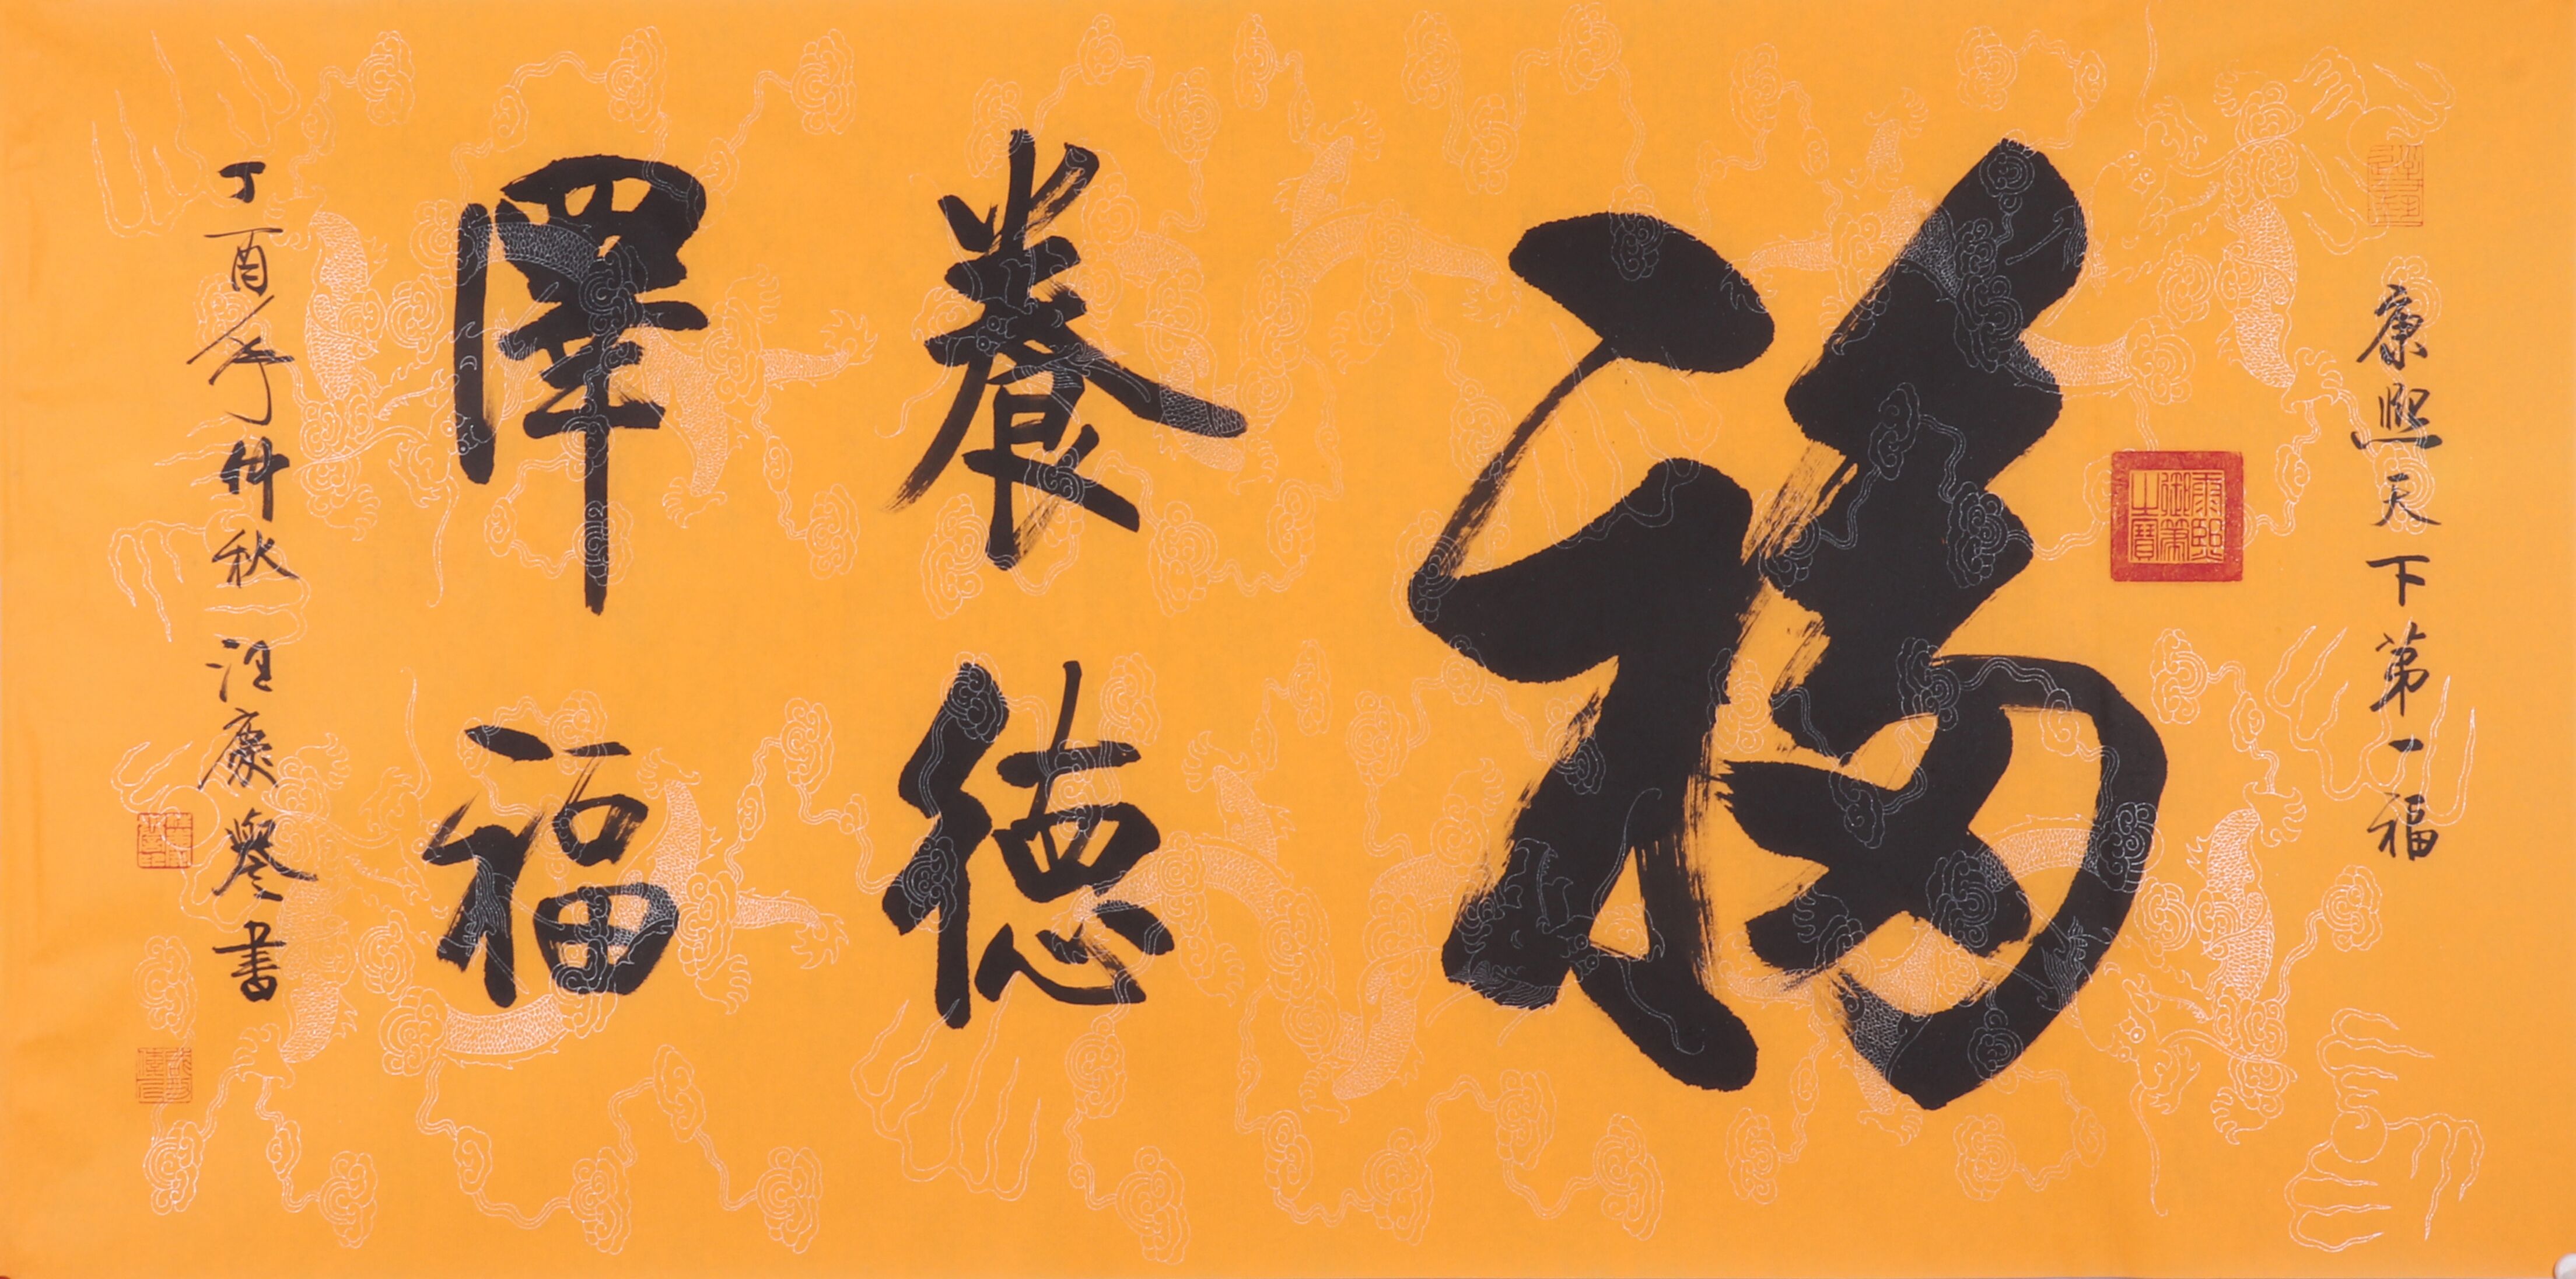 康熙天下第一福
康熙御筆之寶
福
養德
澤福
丁酉年仲秋 汪康書